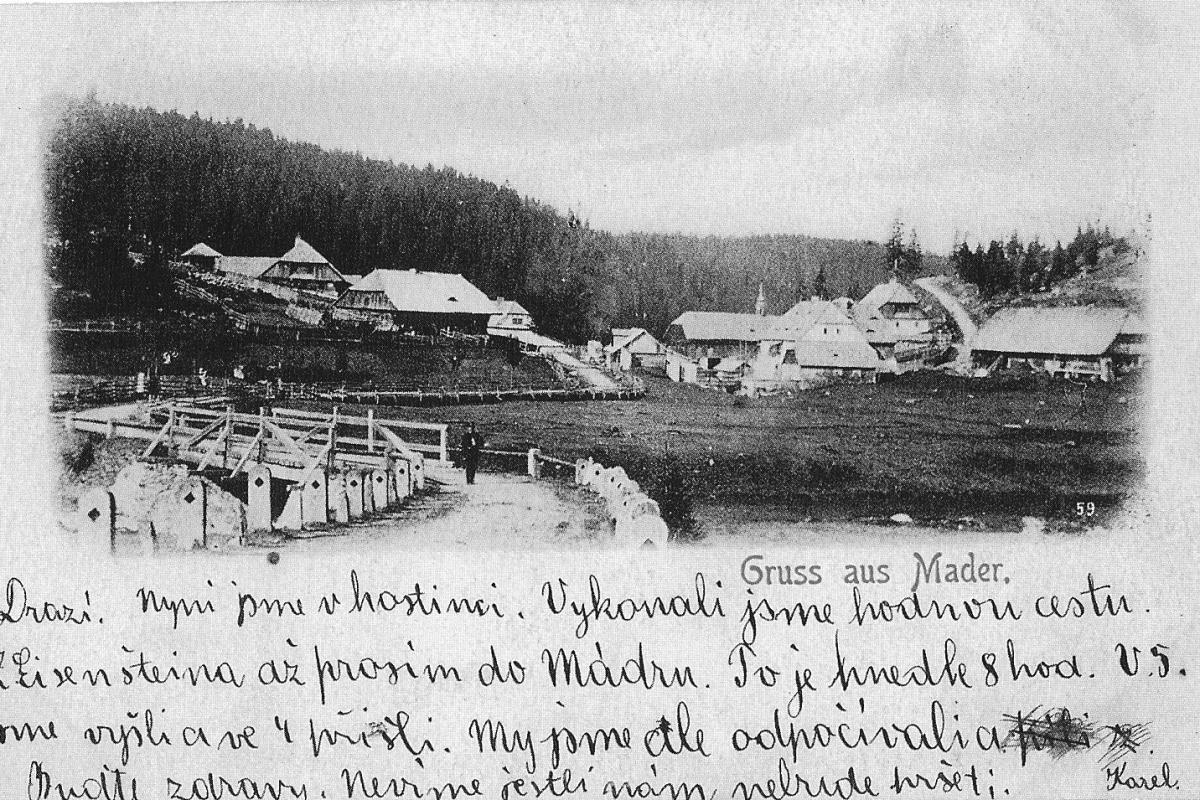 59
Gruss aus Mader.
Drazí. Nyní jsme v hostinci. Vykonali jsme hodnou cestu.
Z Eisenšteina až prosím do Mádru. To je hnedle 8 hod. V 5.
sme vyšli a ve 4 přišli. My jsme ale odpočívali a
Buďte zdravy. Nevíme jestli nám nebude pršet;
Karel.